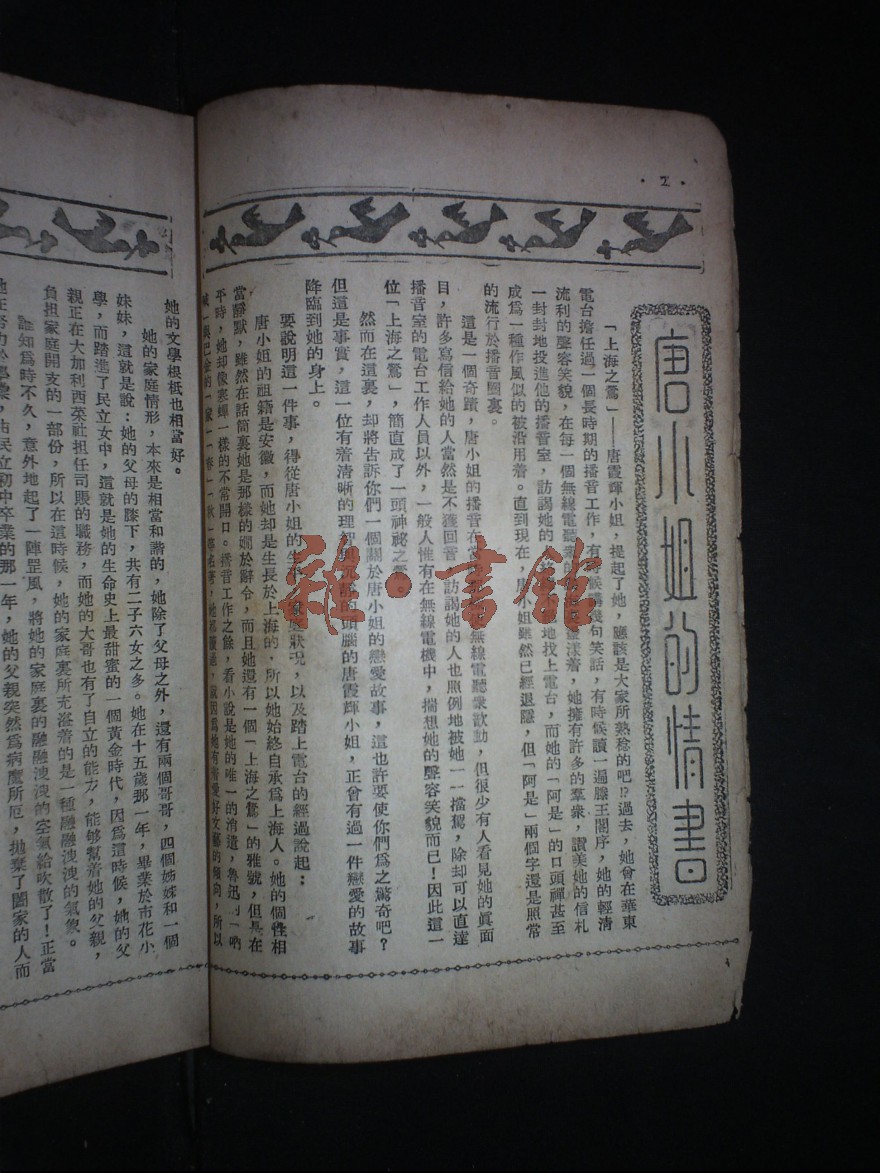 ·2·
唐小姐的情書
「上海之鶯」——唐霞輝小姐，提起了她，應該是大家所熟稔的吧!?過去，她曾在華東
電台擔任過一個長時期的播音工作，有時候講幾句笑話，有時候讀一遍滕王閣序，她的輕清
流利的聲容笑貌，在每一個無線電聽衆的漾着，她擁有許多的羣衆，讚美她的信札
一封封地投進他的播音室，訪謁她的地找上電台，而她的「阿是」的口頭禪甚至
成爲一種作風似的被沿用着。直到現在，唐小姐雖然已經退隱，但「阿是」兩個字還是照常
的流行於播音圈裏。
這是一個奇蹟，唐小姐的播音在當無線電聽衆歆動，但很少有人看見她的眞面
目，許多寫信給她的人當然是不獲回音，訪謁她的人也照例地被她一一擋駕，除却可以直達
播音室的電台工作人員以外，一般人惟有在無線電機中，揣想她的聲容笑貌而已！因此這一
位「上海之鶯」，簡直成了一頭神祕之鶯。
然而在這裏，却將告訴你們一個關於唐小姐的戀愛故事，這也許要使你們爲之驚奇吧？
但這是事實，這一位有着清晰的理智與的頭腦的唐霞輝小姐，正曾有過一件戀愛的故事
降臨到她的身上。
要說明這一件事，得從唐小姐的生家庭狀况，以及踏上電台的經過說起：
唐小姐的祖籍是安徽，而她却是生長於上海的，所以她始終自承爲上海人。她的個性相
當靜默，雖然在話筒裏她是那樣的嫺於辭令，而且她還有一個「上海之鶯」的雅號，但是在
平時，她却像寒蟬一樣的不常開口。播音工作之餘，看小說是她的唯一的消遣，魯迅的「吶
喊」與巴金的「家」「春」「秋」等名著，她都讀過，就因爲她有着愛好文藝的傾向，所以
她的文學根柢也相當好。
她的家庭情形，本來是相當和諧的，她除了父母之外，還有兩個哥哥，四個姊妹和一個
妹妹，這就是說：她的父母的膝下，共有二子六女之多。她在十五歲那一年，畢業於市花小
學，而踏進了民立女中，這就是她的生命史上最甜蜜的一個黃金時代，因爲這時候，她的父
親正在大加利西菜社担任司賬的職務，而她的大哥也有了自立的能力，能够幫着她的父親，
負担家庭開支的一部份，所以在這時候，她的家庭裏所充溢着的是一種融融洩洩的氣象。
誰知爲時不久，意外地起了一陣罡風，將她的家庭裏的融融洩洩的空氣給吹散了！正當
她在努力於學業，由民立初中卒業的那一年，她的父親突然爲病魔所厄，拋棄了闔家的人而
雜·書館